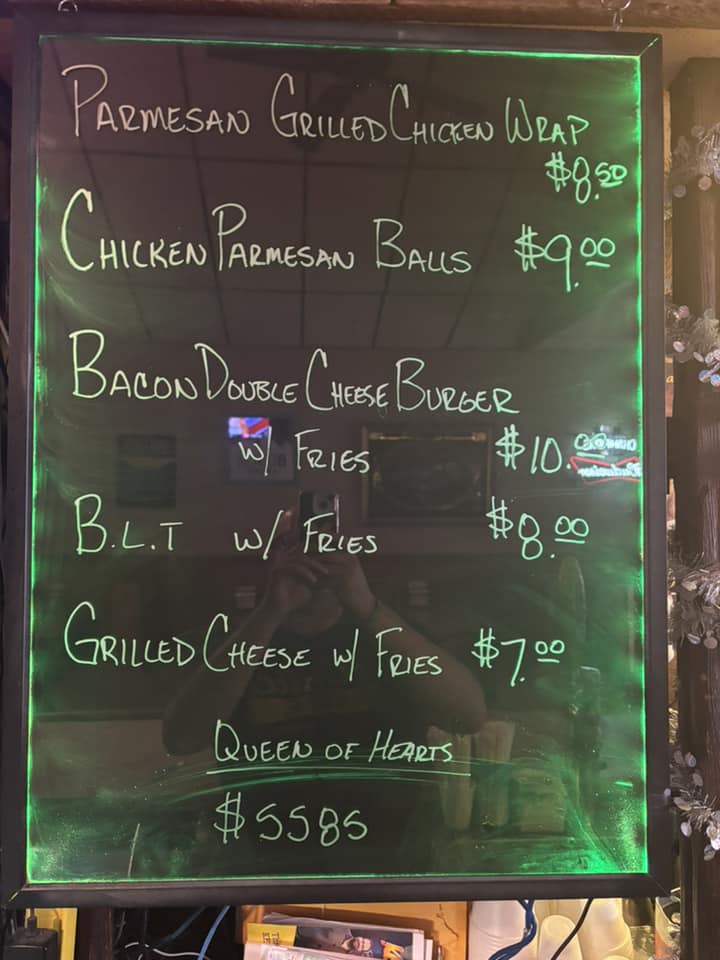 PARMESAN GRILLED CHICKEN WRAP
$8.50
CHICKEN PARMESAN BALLS $9.00
BACON DOUBLE CHEESE BURGER
w/ FRIES $10.
B.L.T w/ FRIES $8.00
GRILLED CHEESE w/ FRIES $7.00
QUEEN OF HEARTS
$5585